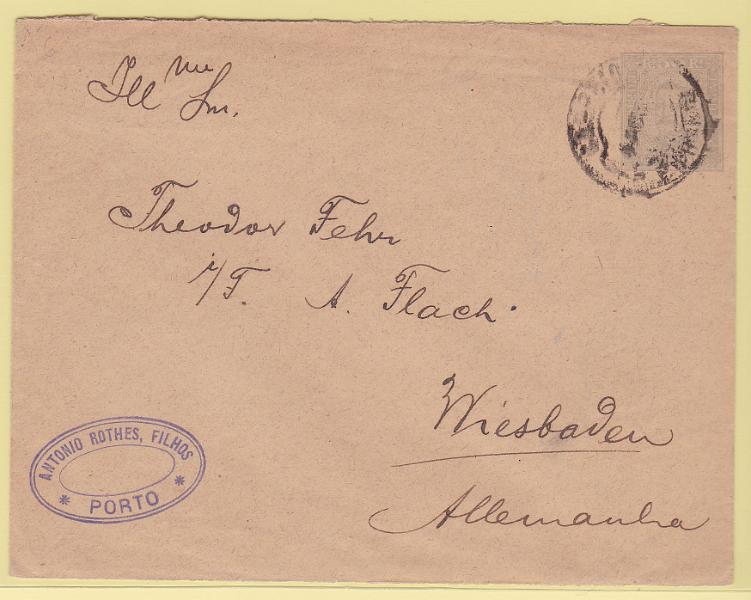 Ill mo Sm.
Theodor Fehr
i/F. A. Flach.
Wiesbaden
Allemanha
ANTONIO ROTHES, FILHOS
* PORTO *